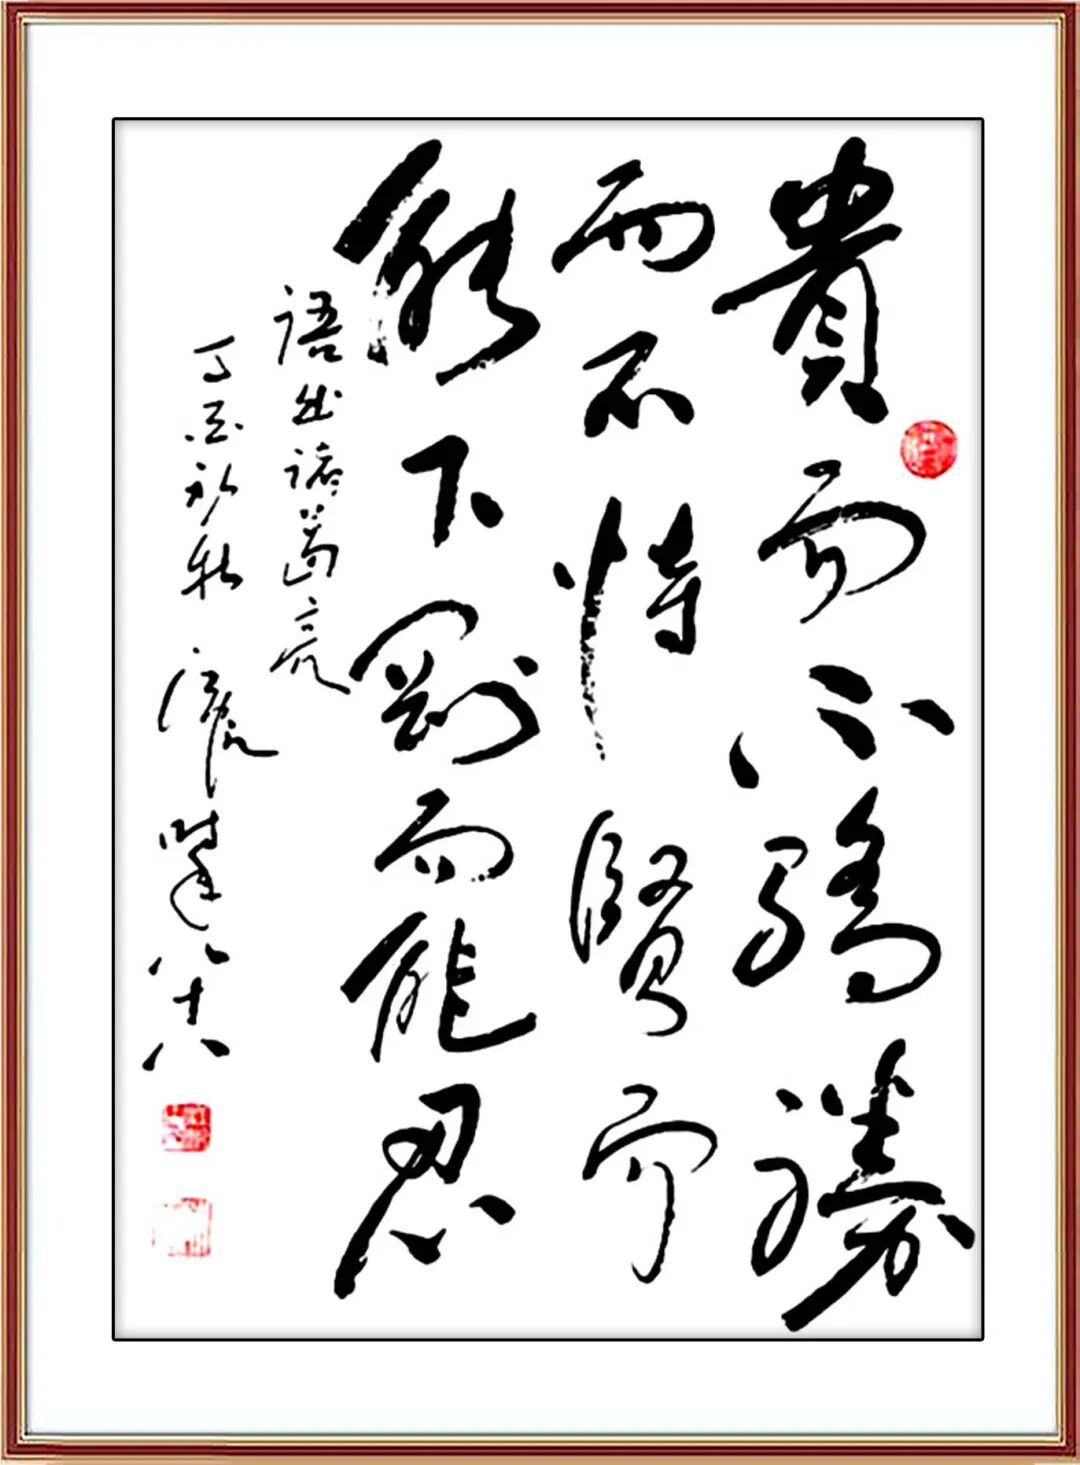 貴而不驕勝
而不恃賢而
能下剛而能忍
语出诸葛亮
丁酉初秋 八十八